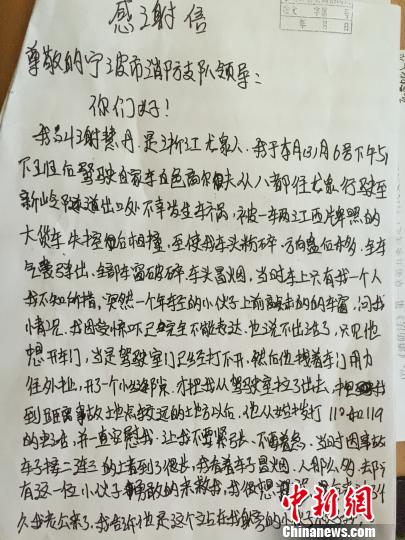 感谢信
尊敬的宁波市消防支队领导：
你们好！
我叫谢慧丹，是浙江龙泉人，我于本月31月6号下午5
下班后驾驶自家车白色高尔夫从八都往龙泉行驶至
新岭隧道出口处不幸发生车祸，被一辆江西牌照的
大货车失控后相撞，至使我车头粉碎，方向盘位移，全车
气囊弹出，全部车窗破碎，车头冒烟，当时车上只有我一个人
我不知所措，突然一个年轻的小伙子上前敲我的车窗，问我
情况，我因受惊吓已完全不能表达，也说不出话了，只见他
想开车门，当是驾驶室门已经打不开，然后他拽着车门用力
往外扯，开了个小缝隙，才把我从驾驶室拉了出去，
到距离事故地点较远的地方以后，他人拨打110和119
的电话，并一直安慰我，让我不要紧张，不要着急，当时因事故
车子接二连三的堵看到了很长，我看着车子冒烟，人那么多，却
有这一位小伙子勇敢的来救我，我很想
久我老公来了，我告诉他是这个站在我身旁的小伙子
中新网
www.chinanews.com